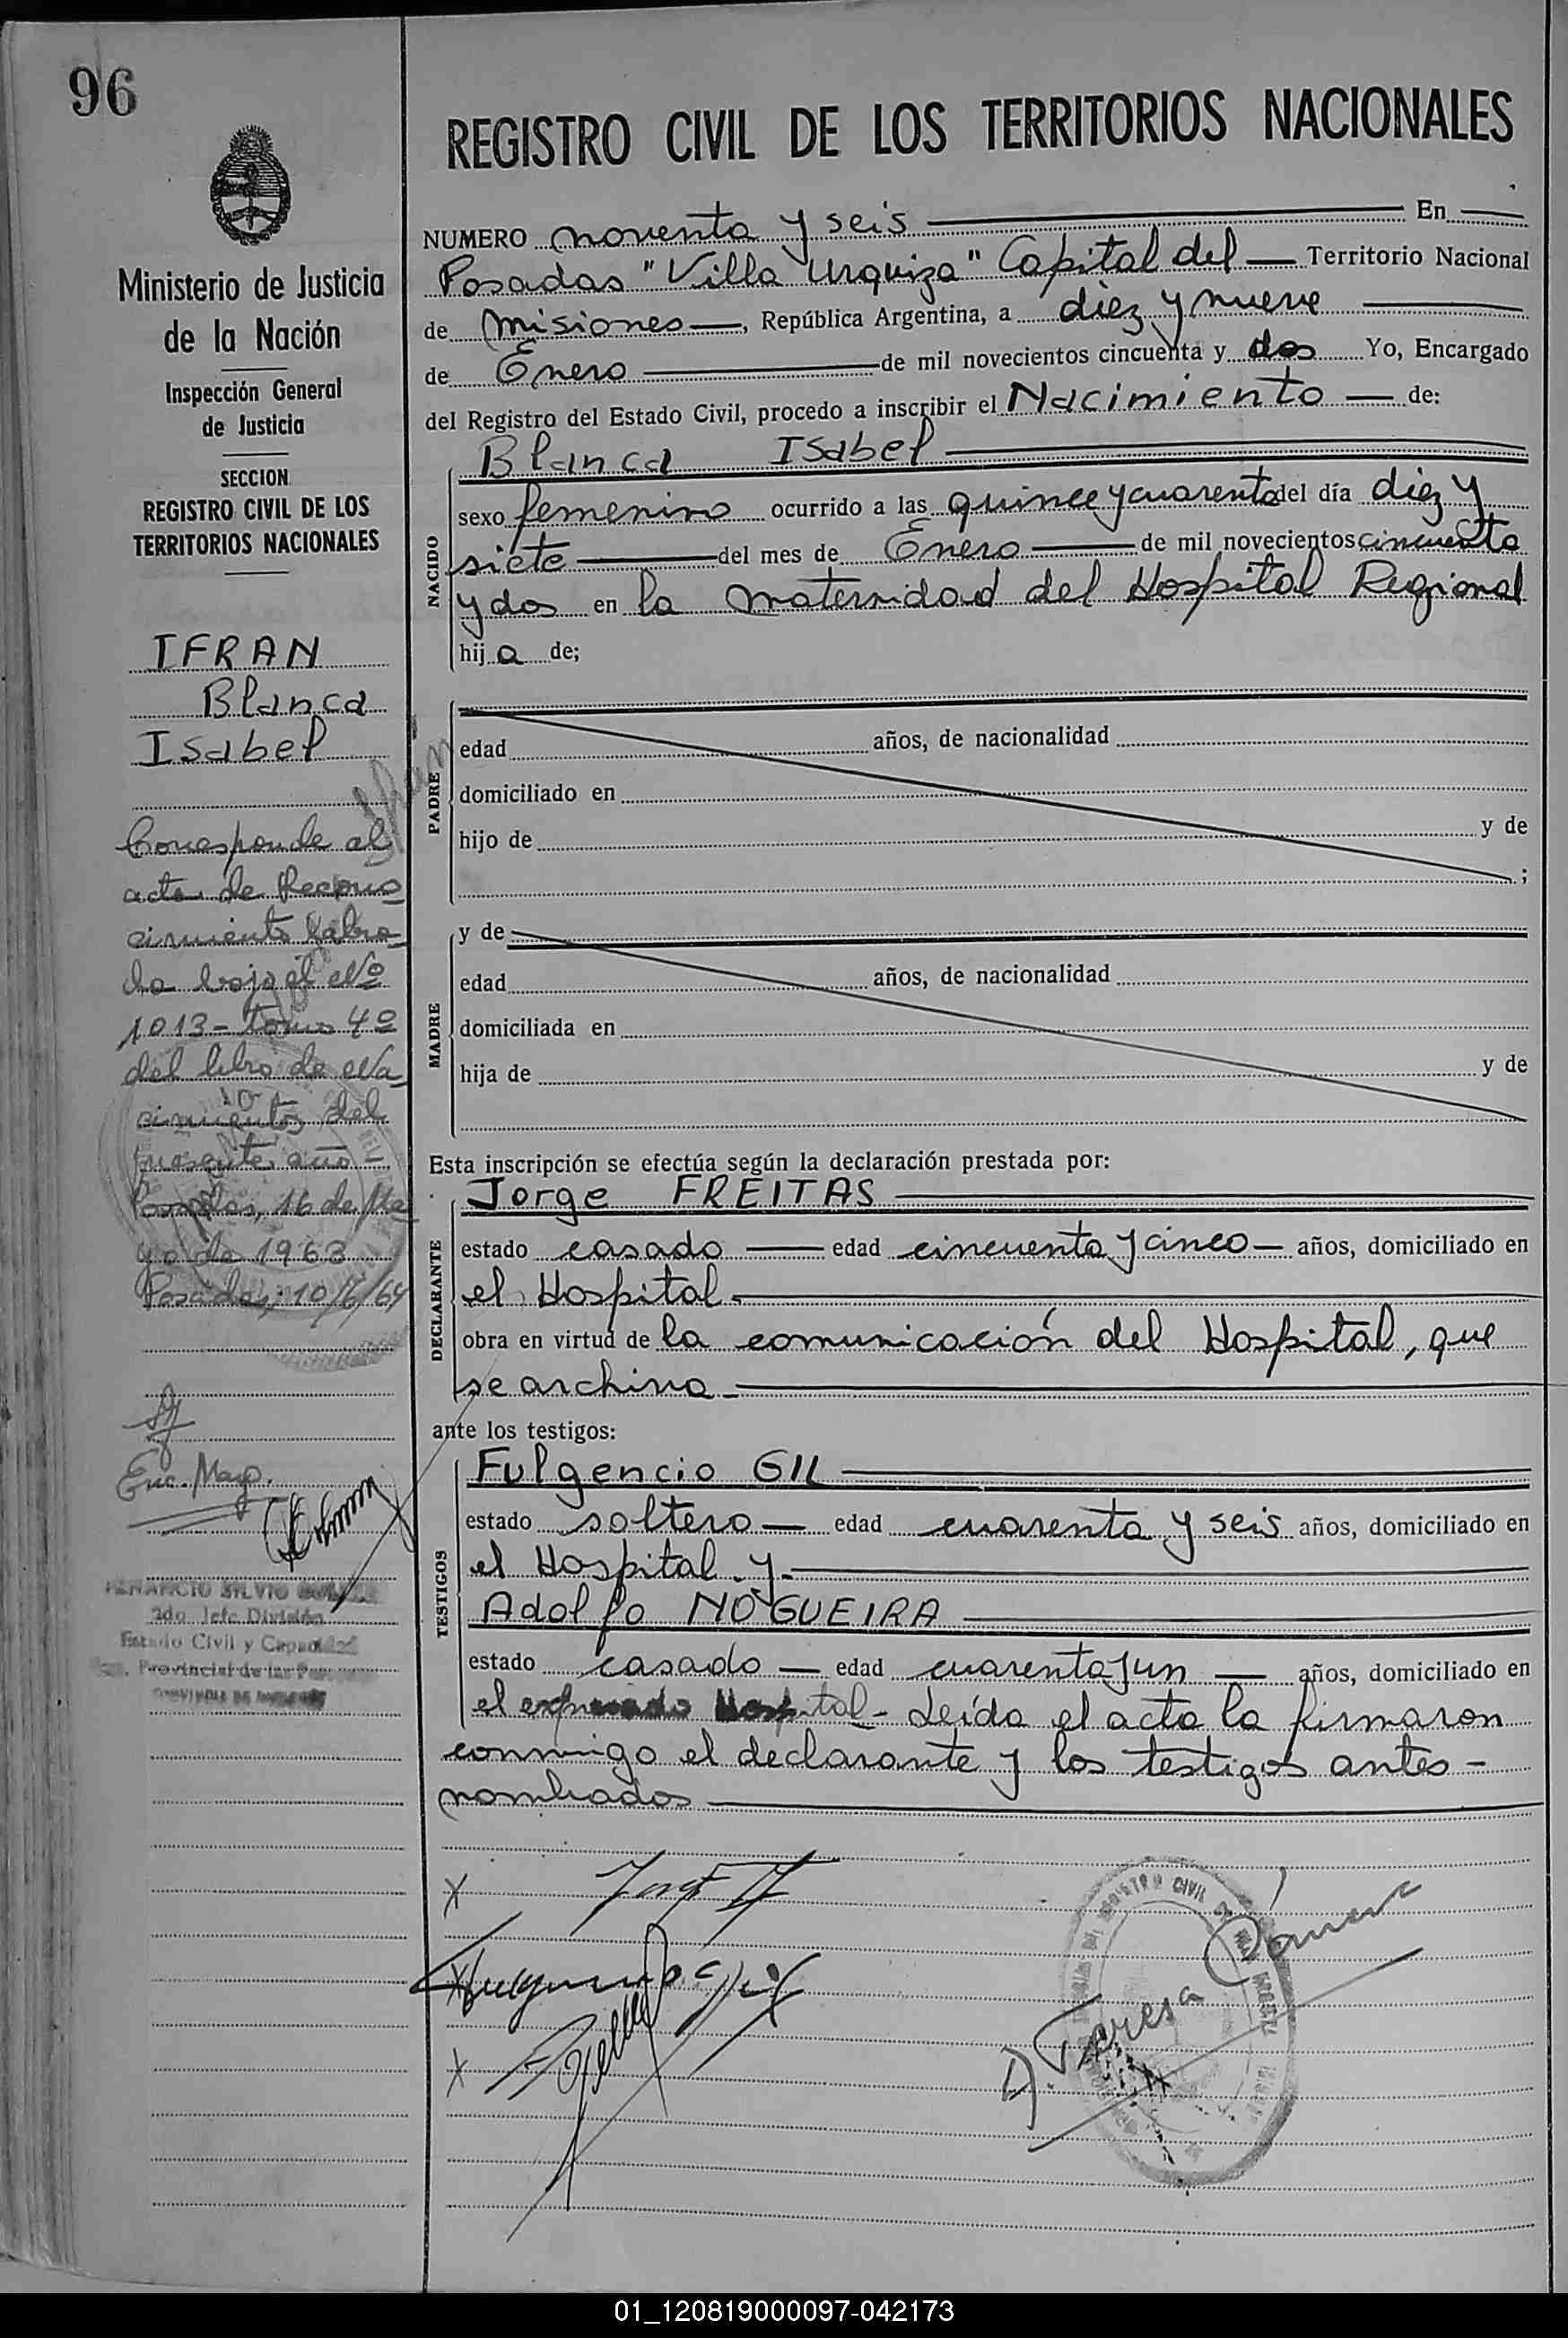 96
REGISTRO CIVIL DE LOS TERRITORIOS NACIONALES
Ministerio de Justicia
de la Nación
Inspección General
de Justicia
SECCION
REGISTRO CIVIL DE LOS
TERRITORIOS NACIONALES
IFRAN
Blanca
Isabel
Corresponde al
acta de Recono
cimiento labra
da bajo el Nº
1013 - tomo 4º
del libro de Na
cimientos del
presente año -
Posadas, 16 de Ma
yo de 1963
Posadas, 10/6/64
Enc. Mayo.
VENANCIO SILVIO
2do. Jefe División
Estado Civil y Capacidad
Provincial de las
NUMERO noventa y seis En
Posadas "Villa Urquiza" Capital del Territorio Nacional
de Misiones, República Argentina, a diez y nueve
de Enero de mil novecientos cincuenta y dos Yo, Encargado
del Registro del Estado Civil, procedo a inscribir el Nacimiento de:
NACIDO
Blanca Isabel
sexo femenino ocurrido a las quince y cuarenta del día diez y
siete del mes de Enero de mil novecientos cincuenta
y dos en la maternidad del Hospital Regional
hij a de;
PADRE
edad años, de nacionalidad
domiciliado en
hijo de y de
;
MADRE
y de
edad años, de nacionalidad
domiciliada en
hija de y de
Esta inscripción se efectúa según la declaración prestada por:
DECLARANTE
Jorge FREITAS
estado casado edad cincuenta y cinco años, domiciliado en
el Hospital.
obra en virtud de la comunicación del Hospital, que
se archiva
ante los testigos:
TESTIGOS
Fulgencio GIL
estado soltero edad cuarenta y seis años, domiciliado en
el Hospital y
Adolfo NOGUEIRA
estado casado edad cuarenta y un años, domiciliado en
el expresado Hospital - Leída el acta la firmaron
conmigo el declarante y los testigos antes -
nombrados
X
X
X
REGISTRO CIVIL
Teresa
01_120819000097-042173